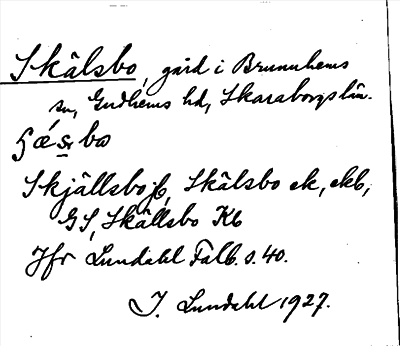 Skälsbo, gård i Brunnhems
sn, Gudhems hd, Skaraborgs län.
Skjällsbo jb, Skälsbo ek, ekb,
GS, Skällsbo Kb
Jfr Lundahl Falb. s. 40.
I. Lundahl 1927.